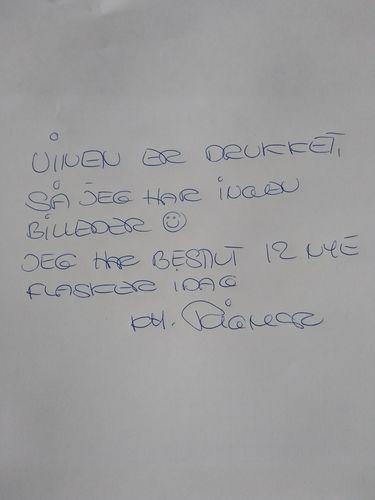 VINEN ER DRUKKET,
SÅ JEG HAR INGEN
BILLEDER ☺
JEG HAR BESTILT 12 NYE
FLASKER IDAG